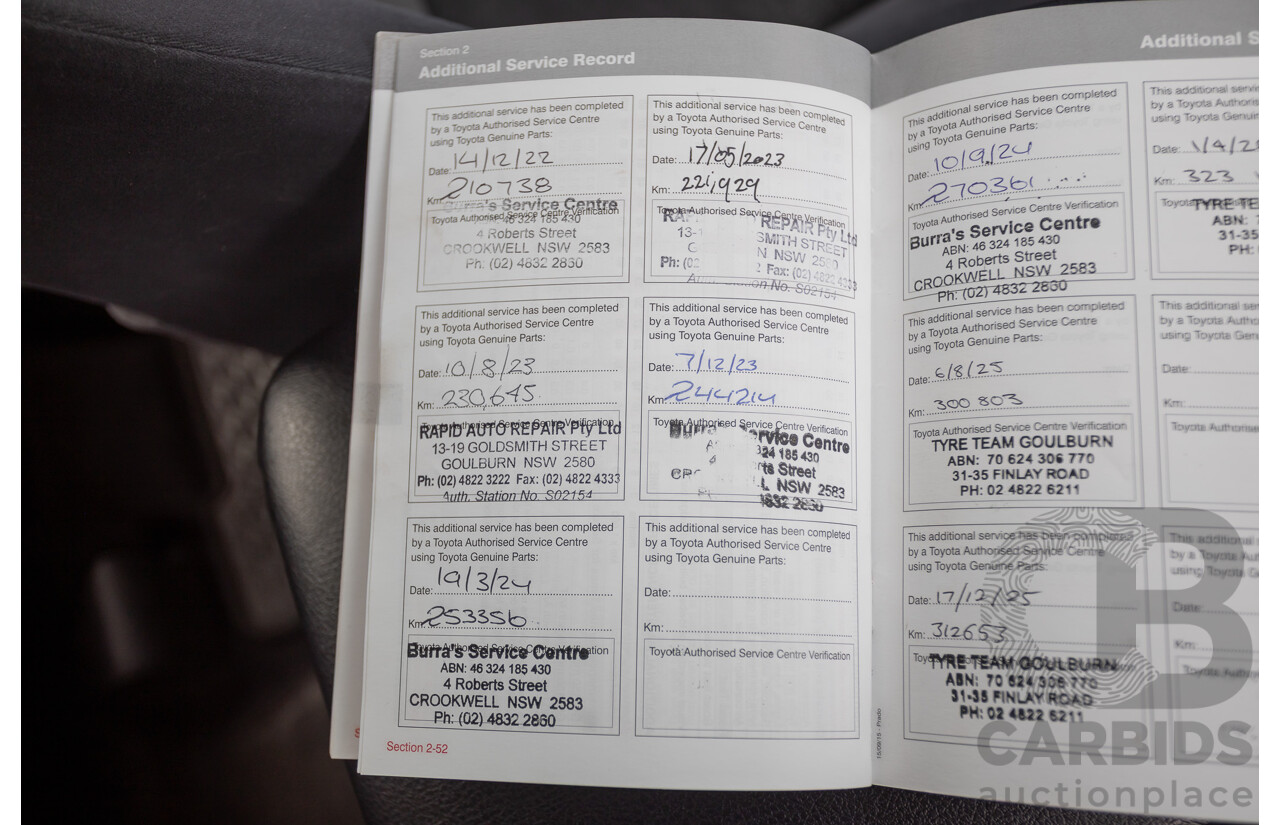 Section 2
Additional Service Record
This additional service has been completed
by a Toyota Authorised Service Centre
using Toyota Genuine Parts:
Date: 14/12/22
Km: 210738
Toyota Authorised Service Centre Verification
Burra's Service Centre
46 324 185 430
4 Roberts Street
CROOKWELL NSW 2583
Ph: (02) 4832 2860
This additional service has been completed
by a Toyota Authorised Service Centre
using Toyota Genuine Parts:
Date: 17/05/2023
Km: 221,929
Toyota Authorised Service Centre Verification
REPAIR Pty Ltd
13-
SMITH STREET
NSW
Ph: (02 Fax: (02) 4822 4333
on No. S02154
This additional service has been completed
by a Toyota Authorised Service Centre
using Toyota Genuine Parts:
Date: 10/8/23
Km: 230,645
Toyota Authorised Service Centre Verification
RAPID AUTO REPAIR Pty Ltd
13-19 GOLDSMITH STREET
GOULBURN NSW 2580
Ph: (02) 4822 3222 Fax: (02) 4822 4333
Auth. Station No. S02154
This additional service has been completed
by a Toyota Authorised Service Centre
using Toyota Genuine Parts:
Date: 7/12/23
Km: 244214
Toyota Authorised Service Centre Verification
Burra's Service Centre
324 185 430
ts Street
NSW 2583
This additional service has been completed
by a Toyota Authorised Service Centre
using Toyota Genuine Parts:
Date: 19/3/24
Km: 253356
Toyota Authorised Service Centre Verification
Burra's Service Centre
ABN: 46 324 185 430
4 Roberts Street
CROOKWELL NSW 2583
Ph: (02) 4832 2860
This additional service has been completed
by a Toyota Authorised Service Centre
using Toyota Genuine Parts:
Date:
Km:
Toyota Authorised Service Centre Verification
Section 2-52
15/09/15 - Prado
Additional S
This additional service has been completed
by a Toyota Authorised Service Centre
using Toyota Genuine Parts:
Date: 10/9/24
Km: 270361
Toyota Authorised Service Centre Verification
Burra's Service Centre
ABN: 46 324 185 430
4 Roberts Street
CROOKWELL NSW 2583
Ph: (02) 4832 2860
This additional servi
by a Toyota Authoris
using Toyota Genuin
Date: 1/4/2
Km: 323
Toyota
TYRE TE
ABN:
31-35
PH:
This additional service has been completed
by a Toyota Authorised Service Centre
using Toyota Genuine Parts:
Date: 6/8/25
Km: 300 803
Toyota Authorised Service Centre Verification
TYRE TEAM GOULBURN
ABN: 70 624 306 770
31-35 FINLAY ROAD
PH: 02 4822 6211
This additional ser
by a Toyota Autho
using Toyota Gen
Date:
Km:
Toyota Authorise
This additional service has been completed
by a Toyota Authorised Service Centre
using Toyota Genuine Parts:
Date: 17/12/25
Km: 312653
TYRE TEAM GOULBURN
ABN: 70 624 306 770
31-35 FINLAY ROAD
PH: 02 4822 6211
This additional
by a Toyota Au
using Toyota G
Date:
Km:
Toyota Author
B
CARBIDS
auctionplace